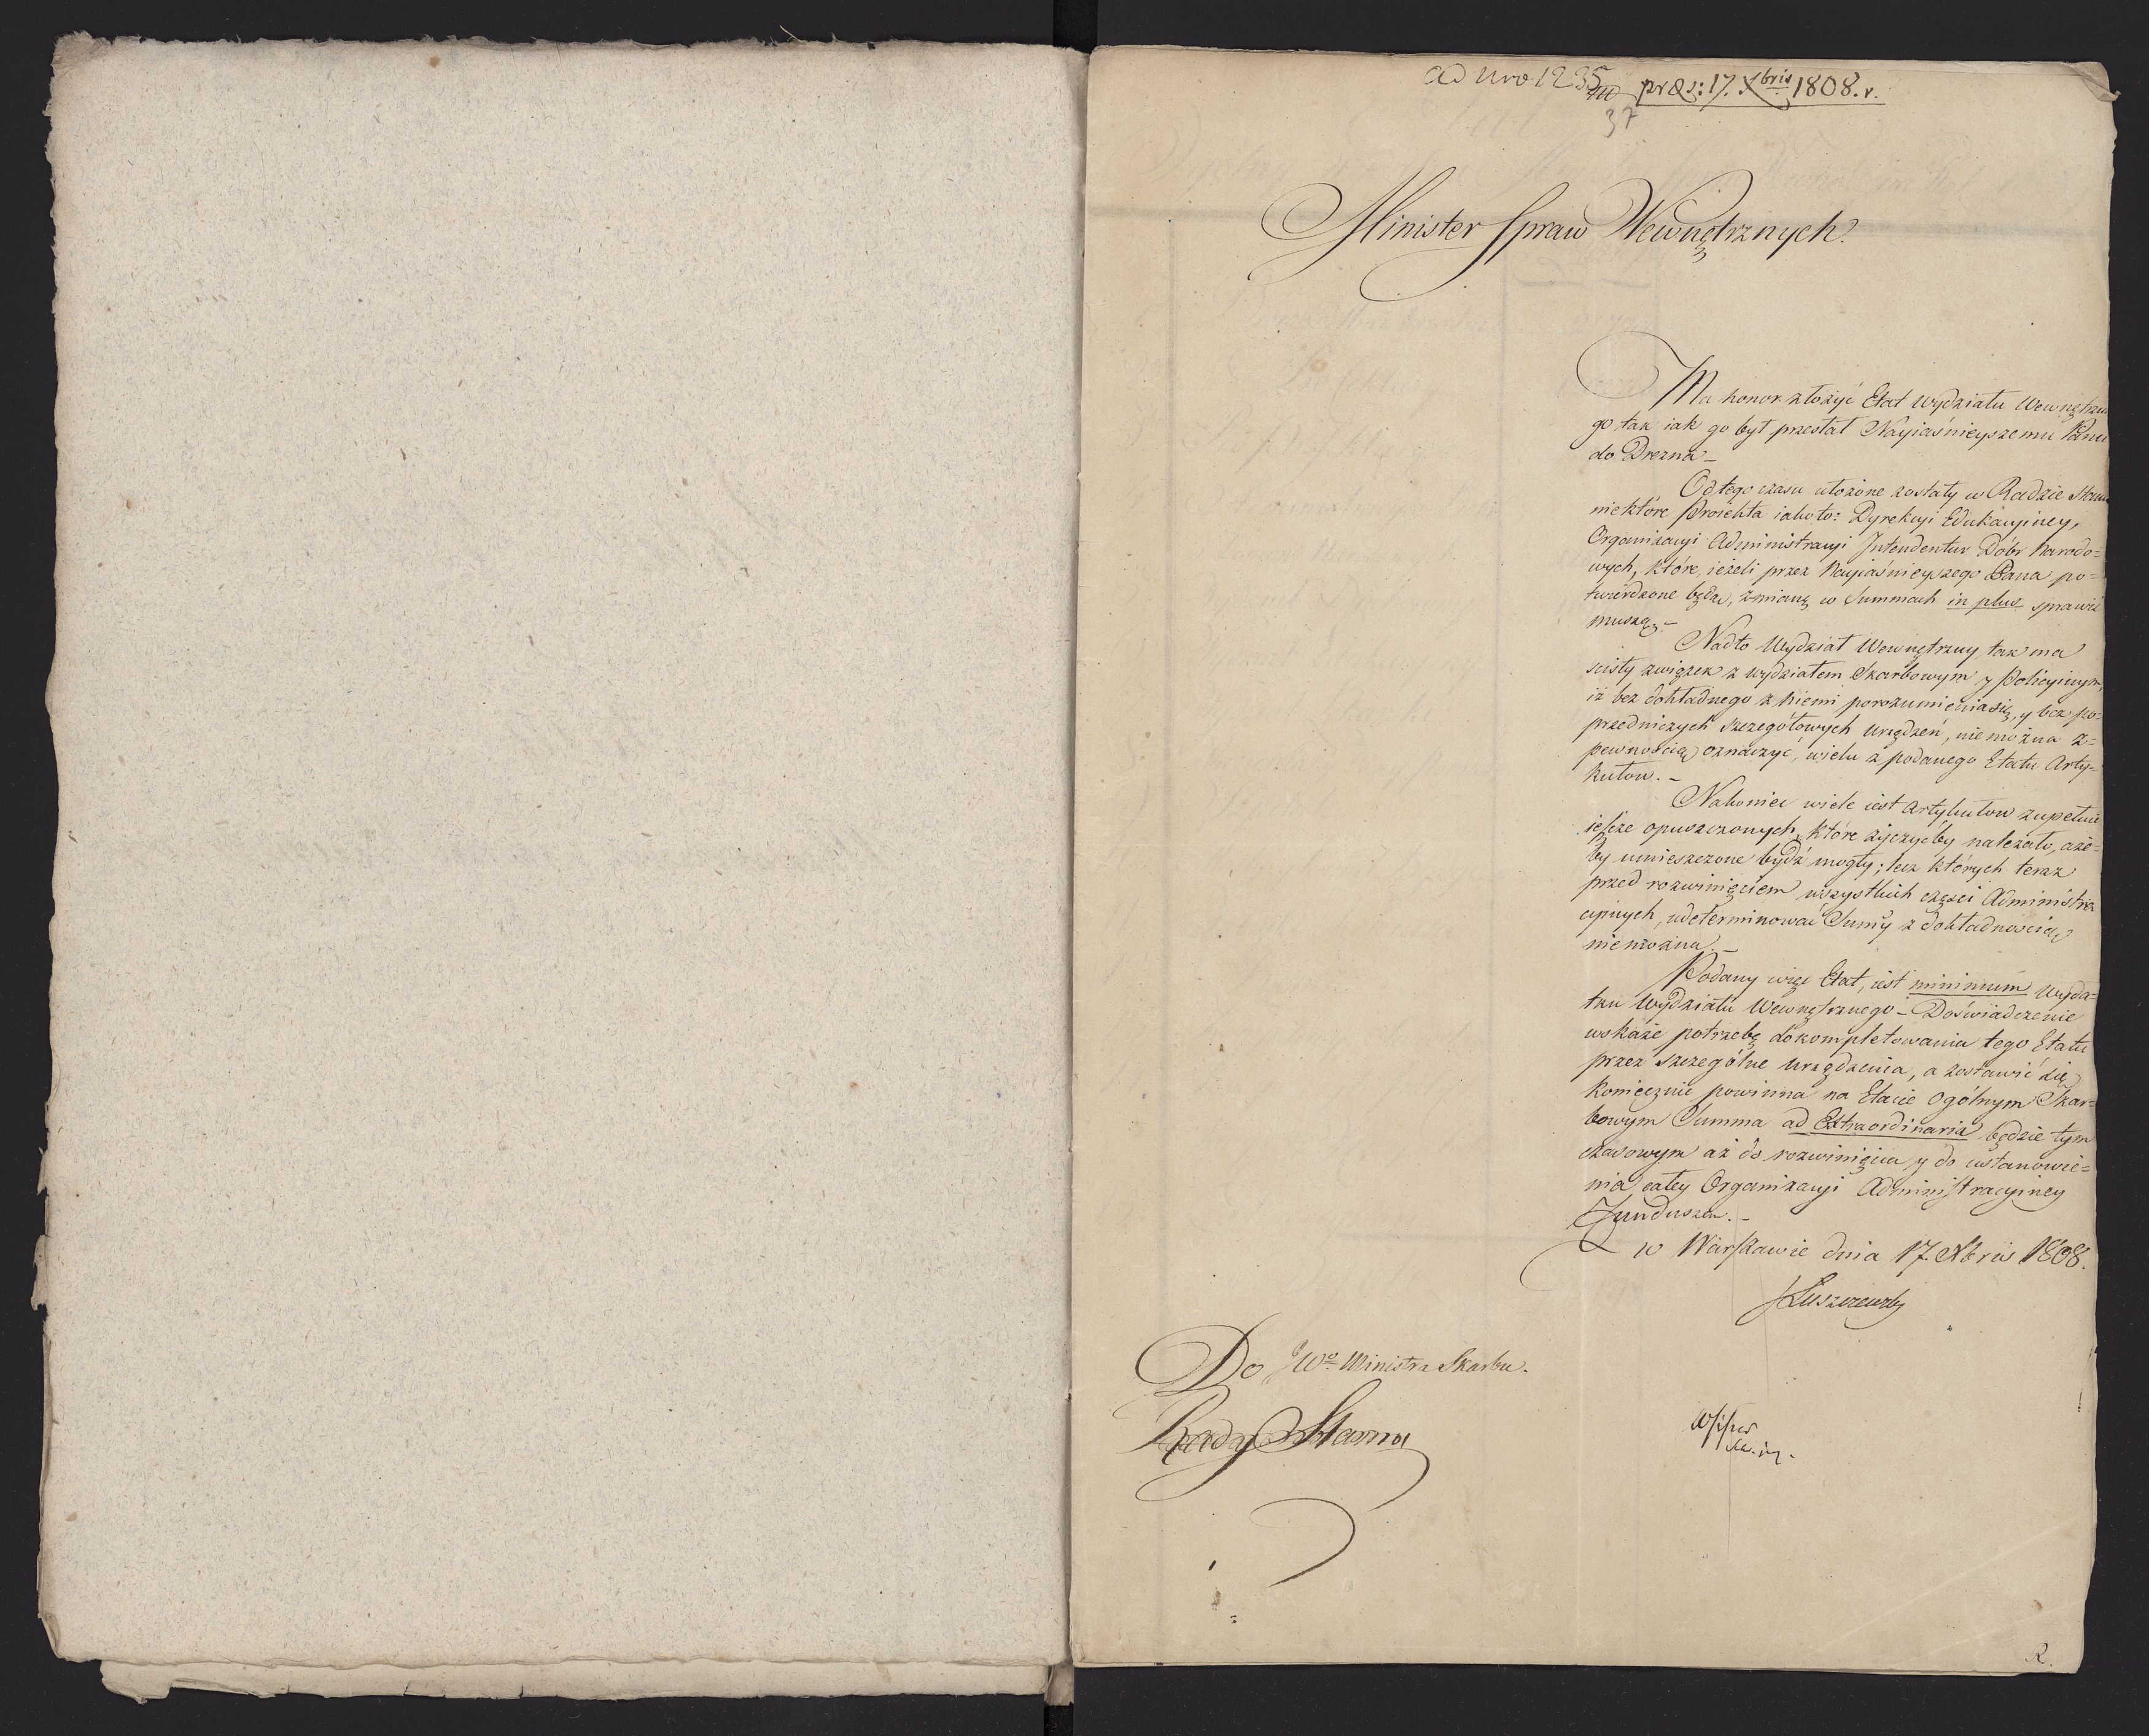 ad Nro 1235
37
præs: 17. Xbris 1808. r.
Minister Spraw Wewnętrznych.
Ma honor złożyć Etat Wydziału Wewnętrzne
go tak iak go był przesłał Nayiaśnieyszemu Panu
do Drezna –
Od tego czasu ułożone zostały w Radzie Stanu
niektóre Proiekta iako to: Dyrekcyi Edukacyiney,
Organizacyi Administracyi Intendentur Dóbr Narodo=
wych, które, ieżeli przez Nayiaśnieyszego Pana po=
twierdzone będą, zmianę w Summach in plus sprawić
muszą. –
Nadto Wydział Wewnętrzny tak ma
scisły związek z wydziałem Skarbowym y Policyinym,
iż bez dokładnego z niemi porozumienia się, y bez po=
przedniczych szczegółowych urządzeń, nie można z=
pewnością oznaczyć, wielu z podanego Etatu Arty=
kułow. –
Nakoniec wiele iest Artykułow zupełnie
ieszcze opuszczonych, które życzyćby należało, aże=
by umieszczone bydź mogły; lecz których teraz
przed rozwinięciem wszystkich części Administra
cyinych, udeterminować Summy z dokładnością
nie można. –
Podany więc Etat, iest minimum Wyda=
tku Wydziału Wewnętrznego – Doświadczenie
wskaże potrzebę dokompletowania tego Etatu
przez szczególne urządzenia, a zostawić się
koniecznie powinna na Etacie Ogólnym Skar=
bowym Summa ad Extraordinaria będzie tym
czasowym aż do rozwinięcia y do ustanowie=
nia całey Organizacyi Administracyiney
Funduszem. –
w Warszawie dnia 17. Xbris 1808.
JŁuszczewsky
Do JWo Ministra Skarbu.
Rady Stanu
R.